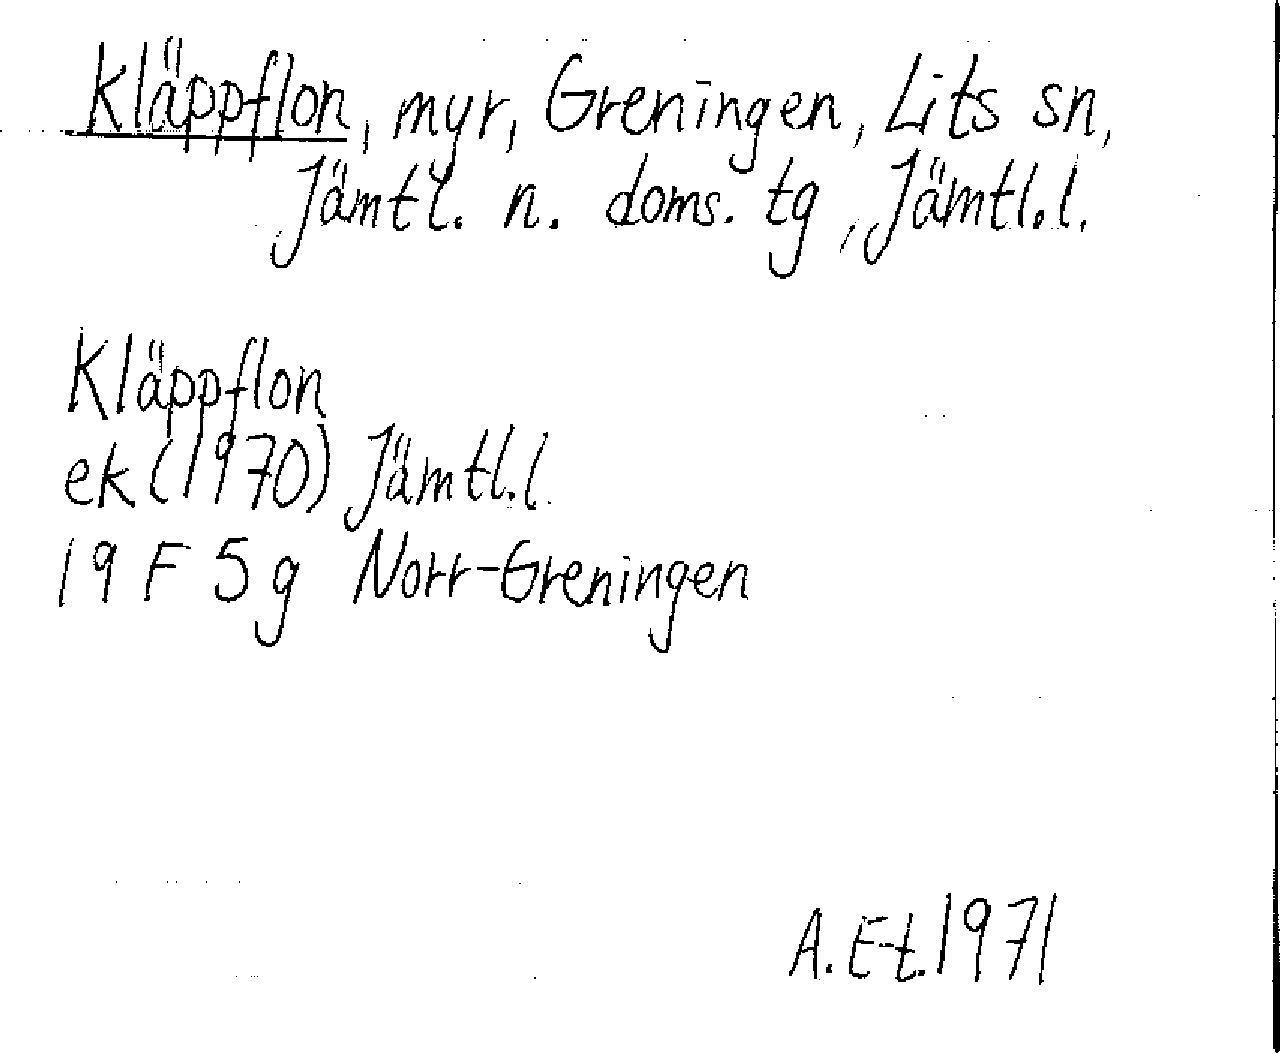 Kläppflon, myr, Greningen, Lits sn,
Jämtl. n. doms. tg, Jämtl.l.
Kläppflon
ek (1970) Jämtl.l.
19 F 5 g Norr-Greningen
A. Et. 1971